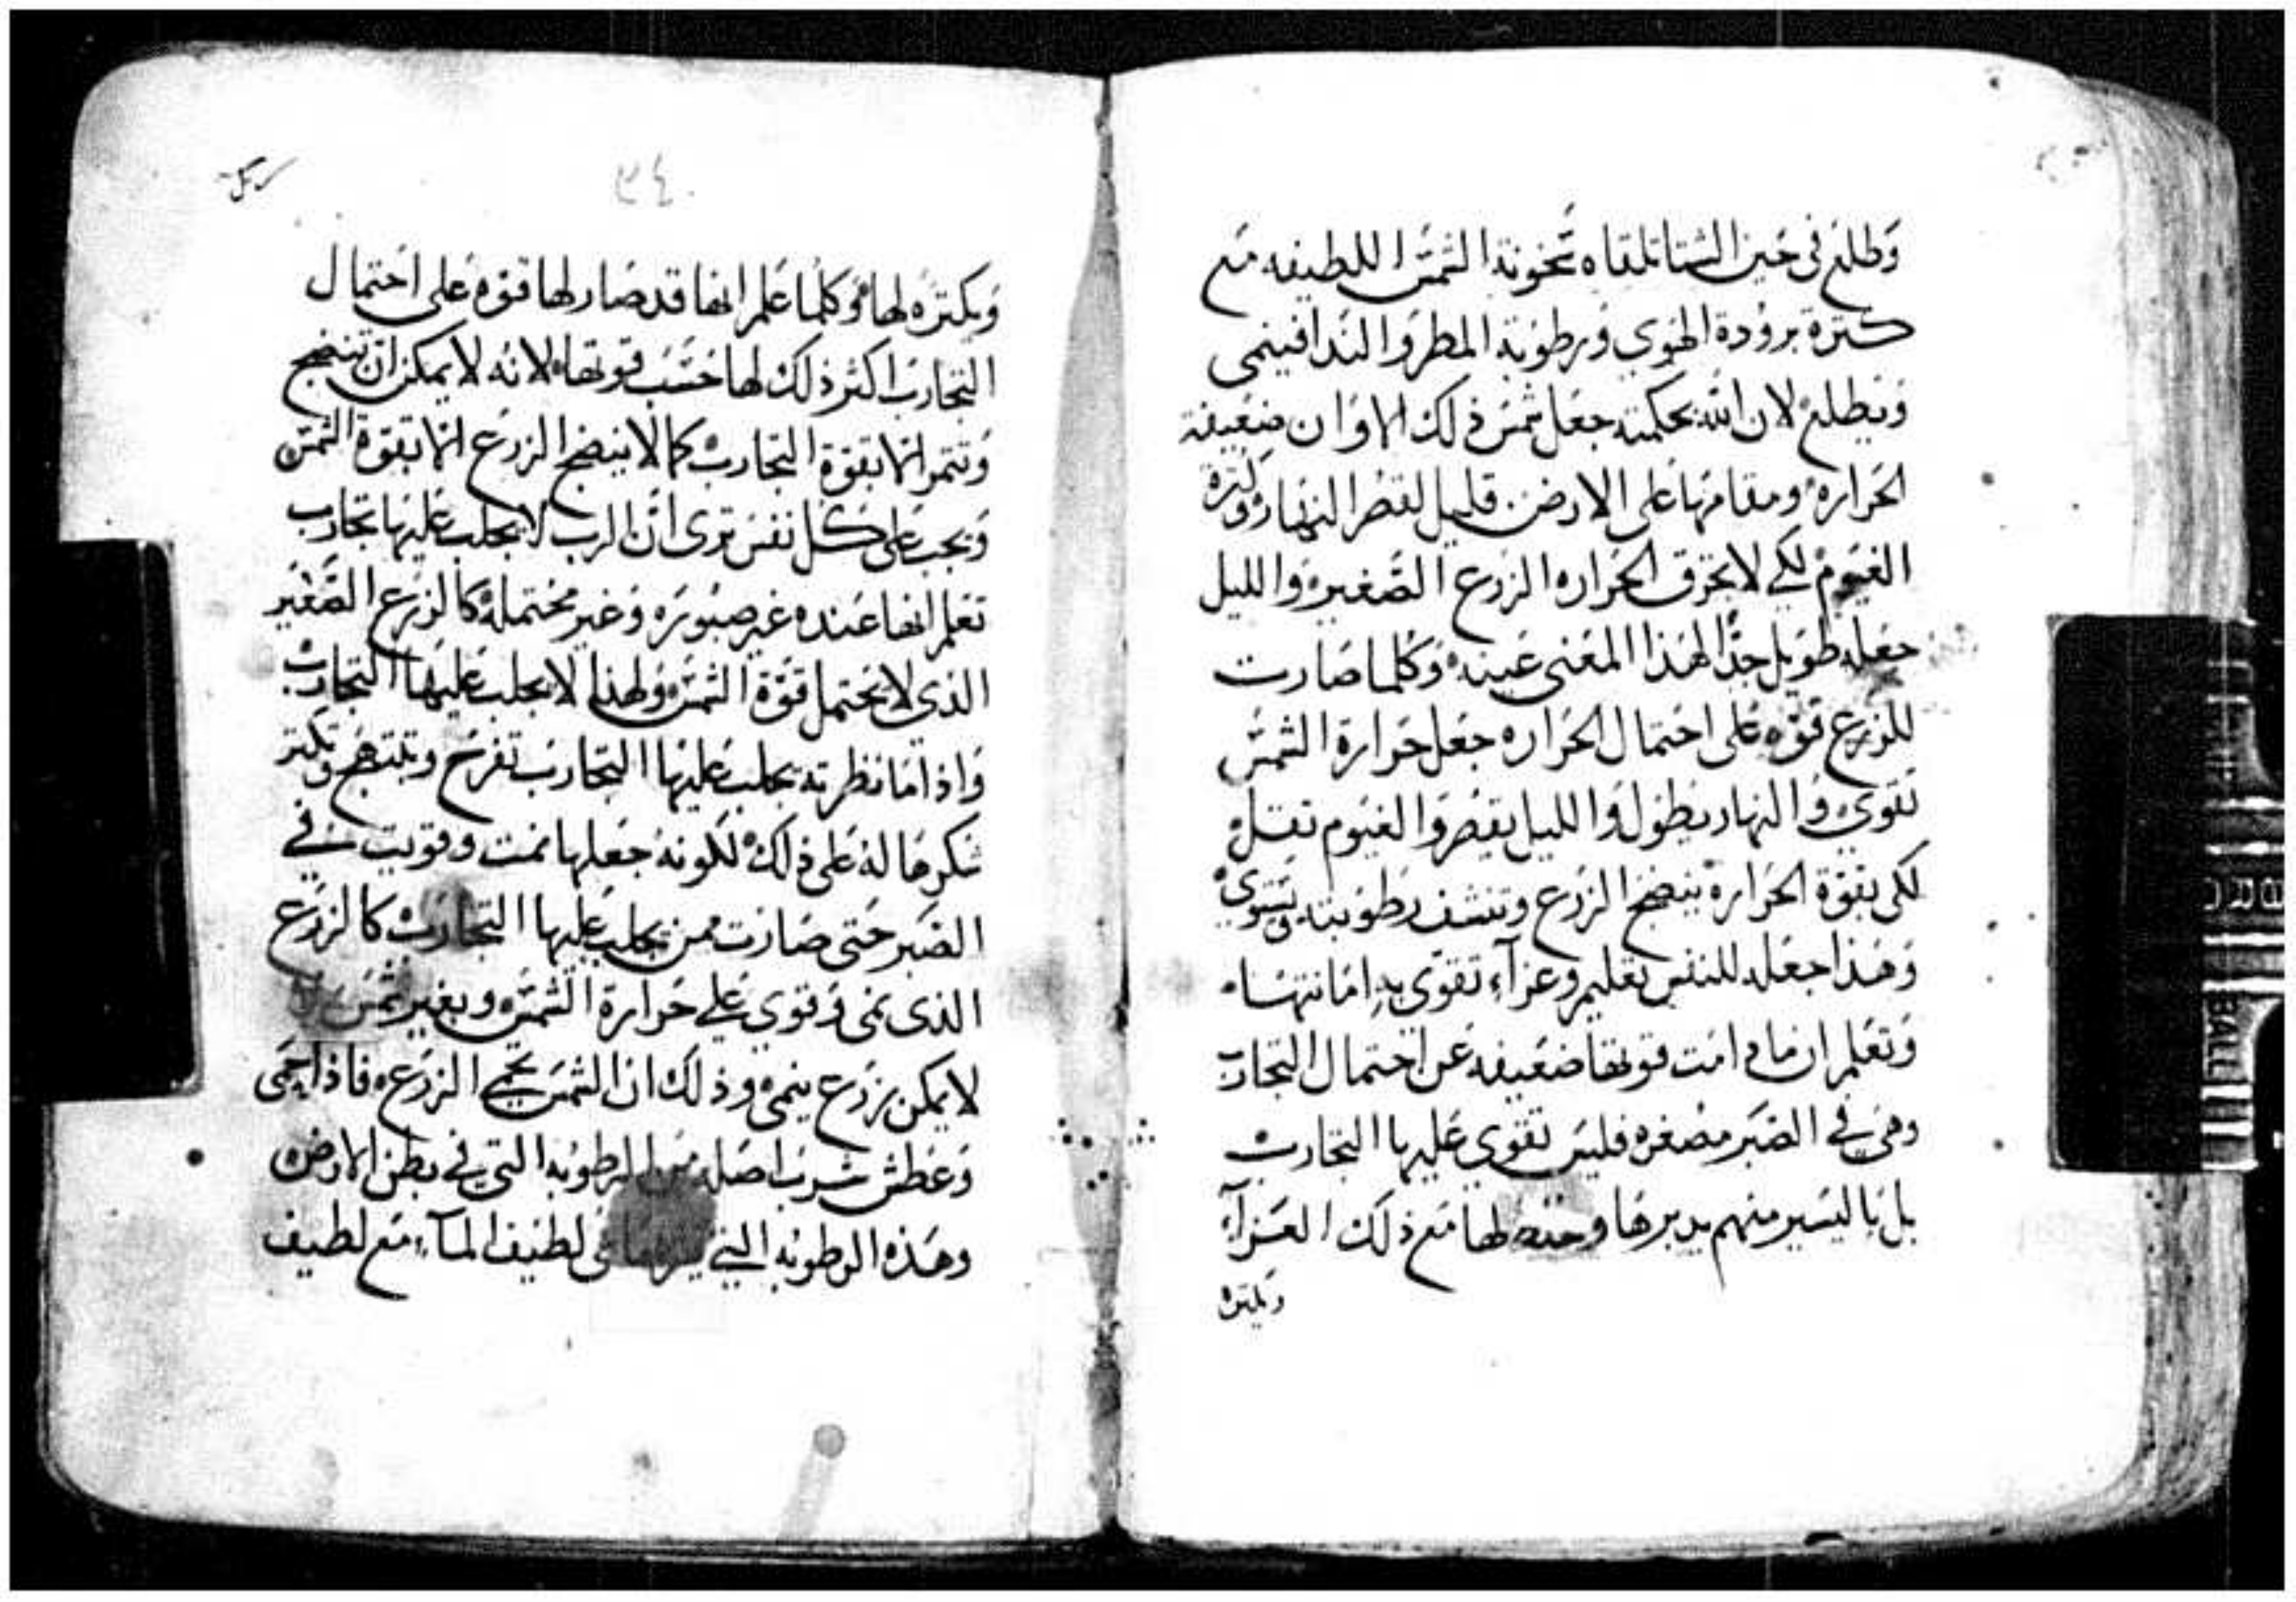 وطلع في حين الشتا تلقاه سخونة الشمس اللطيفه مع
كترة برودة الهوي ورطوبة المطر والندا فينمى
ويطلع لان الله بحكمته جعل شمس ذلك الاوان ضعيفة
الحراره ومقامها على الارض قليل لقصر النهار وكترة
الغيوم لكي لا يحترق الحراره الزرع الصغير والليل
جعله طويل جدا لهذا المعنى عينه وكلما صارت
للزرع قوه على احتمال الحراره جعل حرارة الشمس
تقوي والنهار يطول والليل يقصر والغيوم تقل
لكى بقوة الحرارة ينضج الزرع وتنشف رطوبته ويستوي
وهذا جعله للنفس تعليم وعزآء تقوى به امانتها
وتعلم ان مادامت قوتها ضعيفه عن احتمال التجارب
وهي في الصبر مصغره فليس تقوي عليها التجارب
بل باليسير منهم يدبرها لها مع ذلك العزآء
ويكتره
٣٤
ويكتره لها وكلما علم انها قد صار لها قوه على احتمال
التجارب اكثر ذلك لها حسب قوتها لانه لا يمكن ان تنضج
وتتمر الا بقوة التجارب كما لا ينضج الزرع الا بقوة الشمس
ويجب على كل نفس ترى ان الرب لا يجلب عليها تجارب
تعلم انها عنده غير صبوره وغير محتمله كالزرع الصغير
الذي لا يحتمل قوة الشمس ولهذا لا يجلب عليها التجارب
واذا ما نظرته يجلب عليها التجارب تفرح وتبتهج وتكتر
شكرها له على ذلك لكونه جعلها نمت وقويت في
الصبر حتى صارت ممن يجلب عليها التجارب كالزرع
الذى نمى وقوي على حرارة الشمس وبغير شمس
لا يمكن زرع ينمى وذلك ان الشمس يحمي الزرع فاذا حمى
وعطش شرب اصله من الرطوبه التي في بطن الارض
وهذه الرطوبه التي لطيف المآء مع لطيف